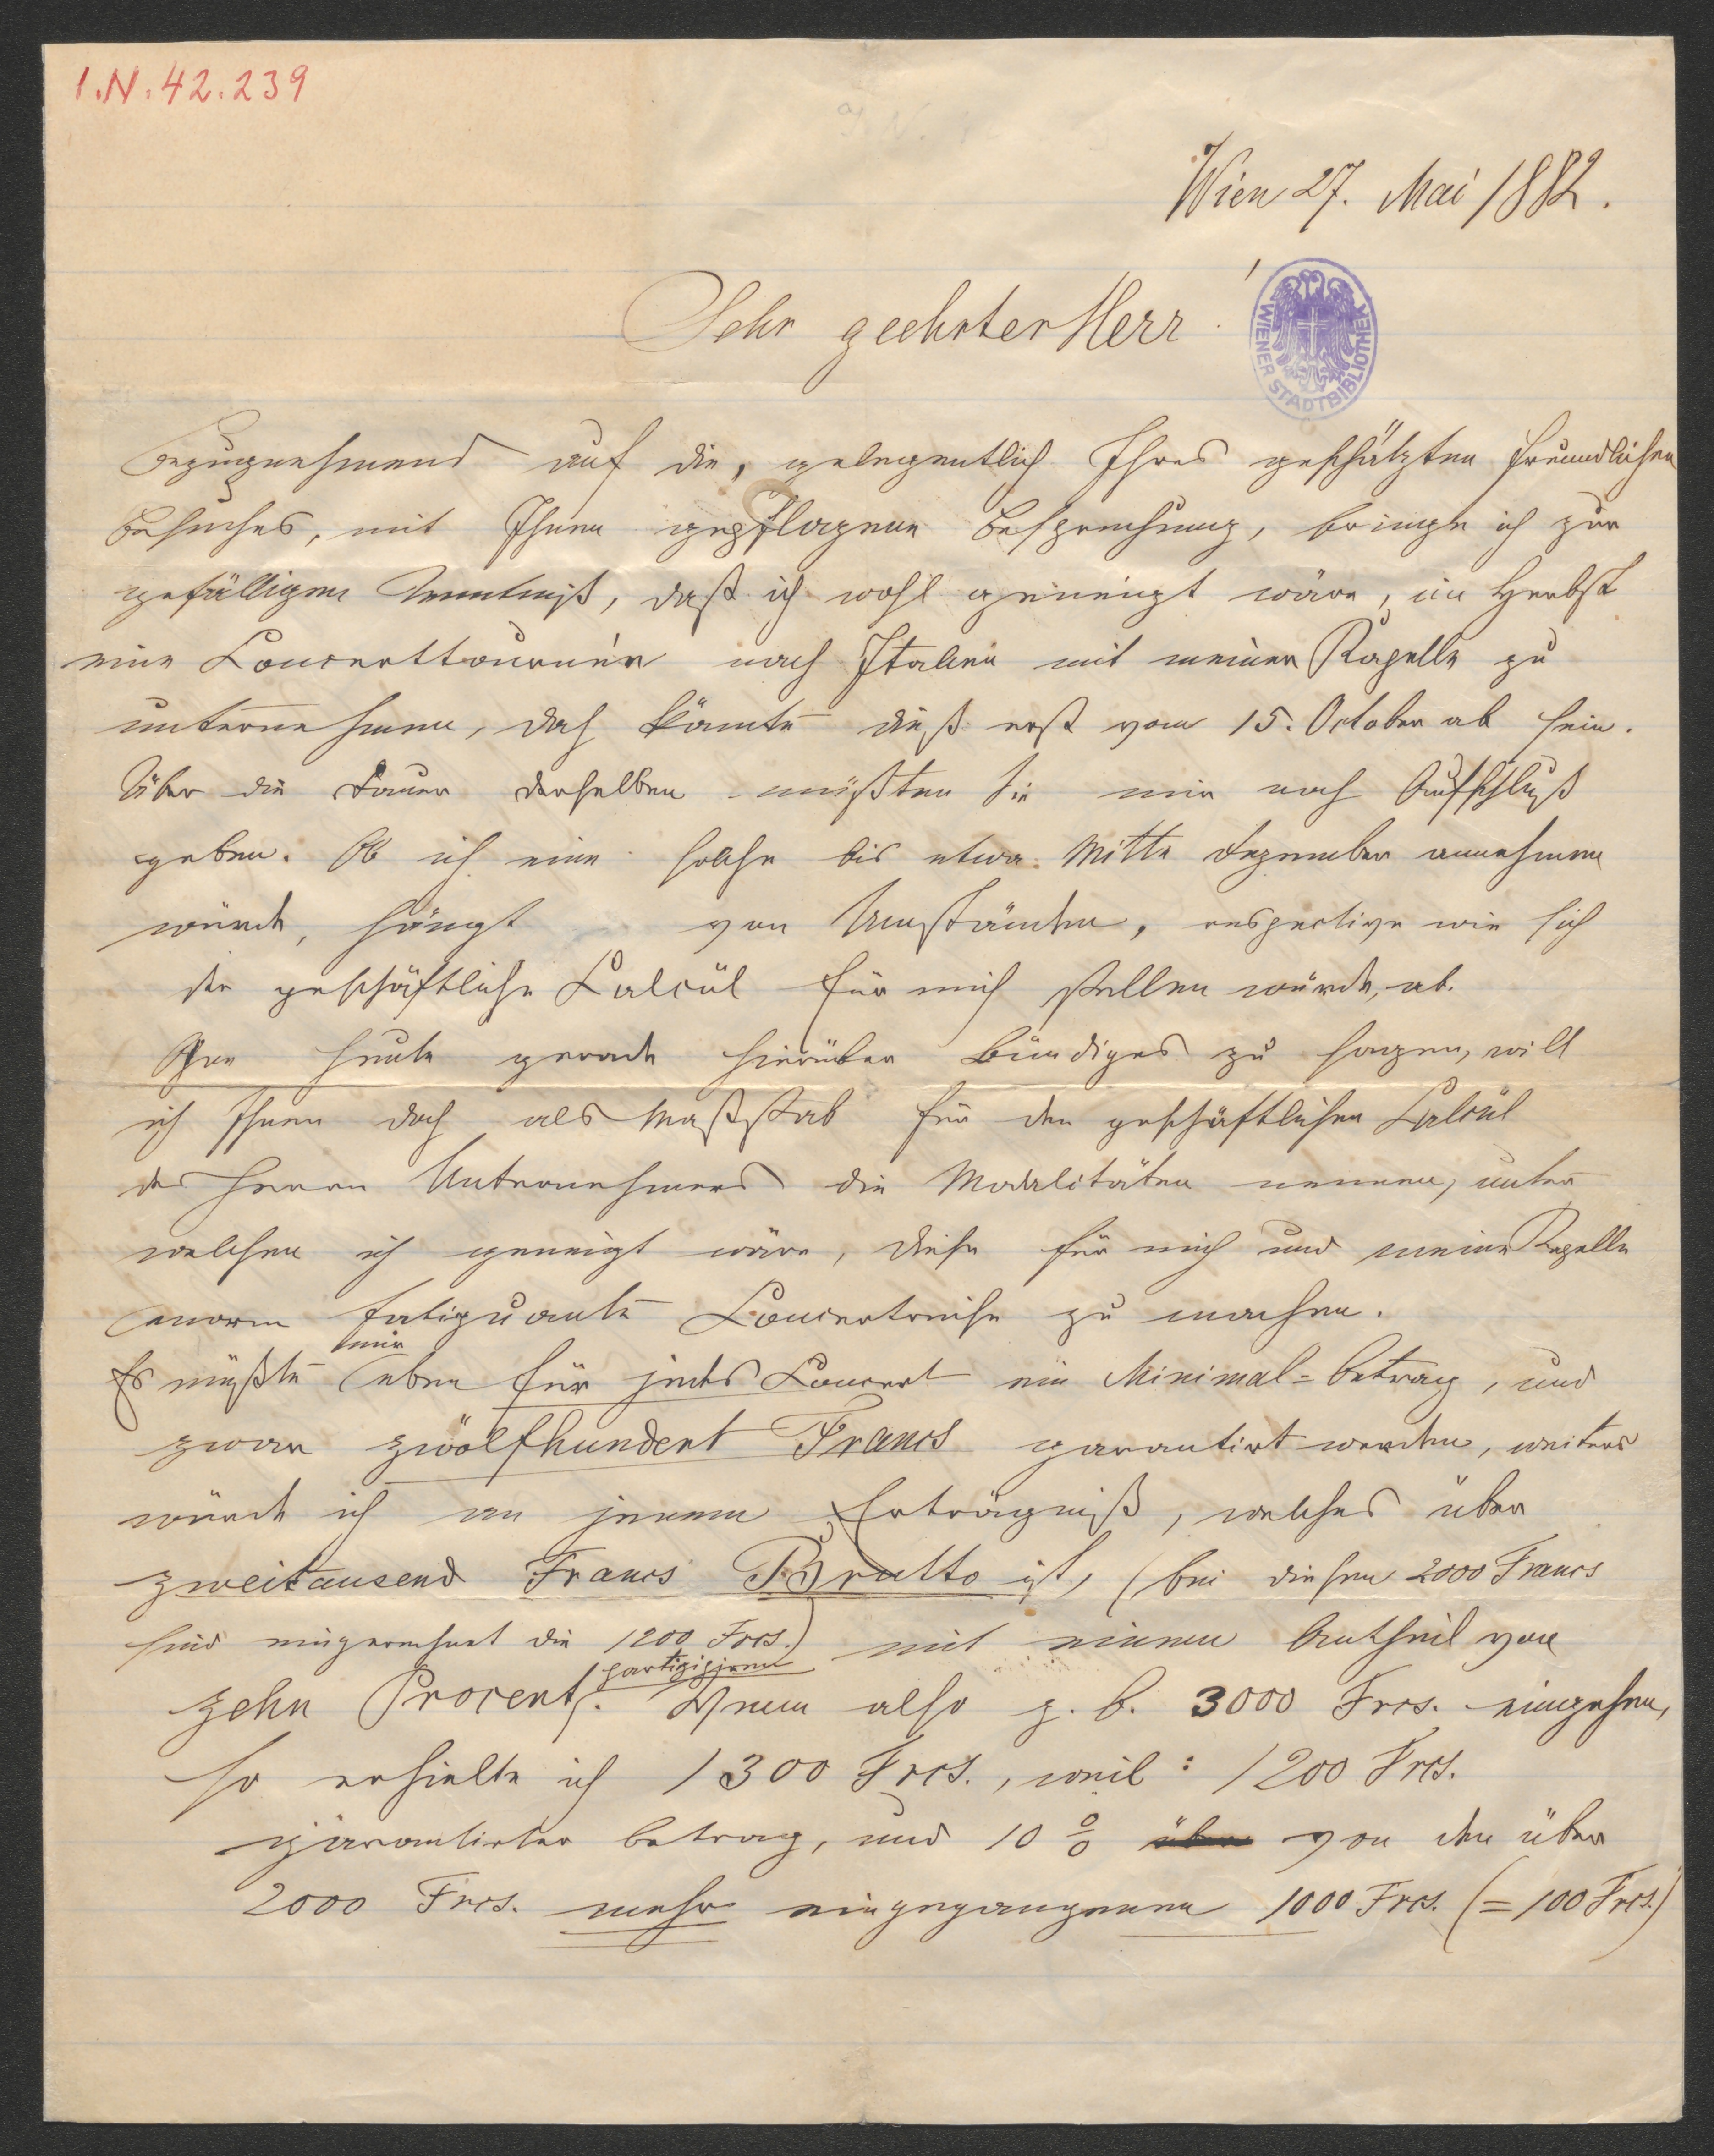 I.N. 42.239
Wien 27. Mai 1882.
Sehr geehrter Herr!
WIENER STADTBIBLIOTHEK
Bezugnehmend auf die, gelegentlich Ihres geschätzten freundlichen
Besuches, mit Ihnen gepflogene Besprechung, bringe ich zur
gefälligen Kenntniß, daß ich wohl geneigt wäre, im Herbst
eine Concerttournée nach Italien mit meiner Kapelle zu
unternehmen, doch könnte dieß erst vom 15. October ab sein.
Über die Dauer derselben müßten Sie mir noch Aufschluß
geben. Ob ich eine solche bis etwa Mitte Dezember annehmen
würde, hängt von Umständen, respective wie sich
der geschäftliche Calcül für mich stellen würde, ab.
Ohne heute gerade hierüber Bündiges zu sagen, will
ich Ihnen doch als Maßstab für den geschäftlichen Calcül
des Herrn Unternehmers die Modalitäten nennen, unter
welchen ich geneigt wäre, diese für mich und meine Kapelle
enorm fatiguante Concertreise zu machen.
Es müßte mir eben für jedes Concert ein Minimal=Betrag, und
zwar zwölfhundert Francs garantirt werden, weiters
würde ich an jenem Erträgniß, welches über
zweitausend Francs Brutto ist, (bei diesen 2000 Francs
sind eingerechnet die 1200 Frcs.) mit einem Antheil von
zehn Procent partizipiren. Wenn also z. B. 3000 Frcs. eingehen,
so erhielte ich 1300 Frcs., weil: 1200 Frcs.
garantirter Betrag, und 10 % über von den über
2000 Frcs. mehr eingegangenen 1000 Frcs. (= 100 Frcs.)